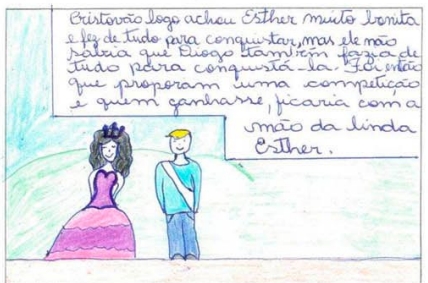 Cristovão logo achou Esther muito bonita
e fez de tudo para conquistar, mas ele não
sabia que Diogo também fazia de
tudo para conquistá-la. Foi então
que proporam uma competição
e quem ganhasse, ficaria com a
mão da linda
Esther.